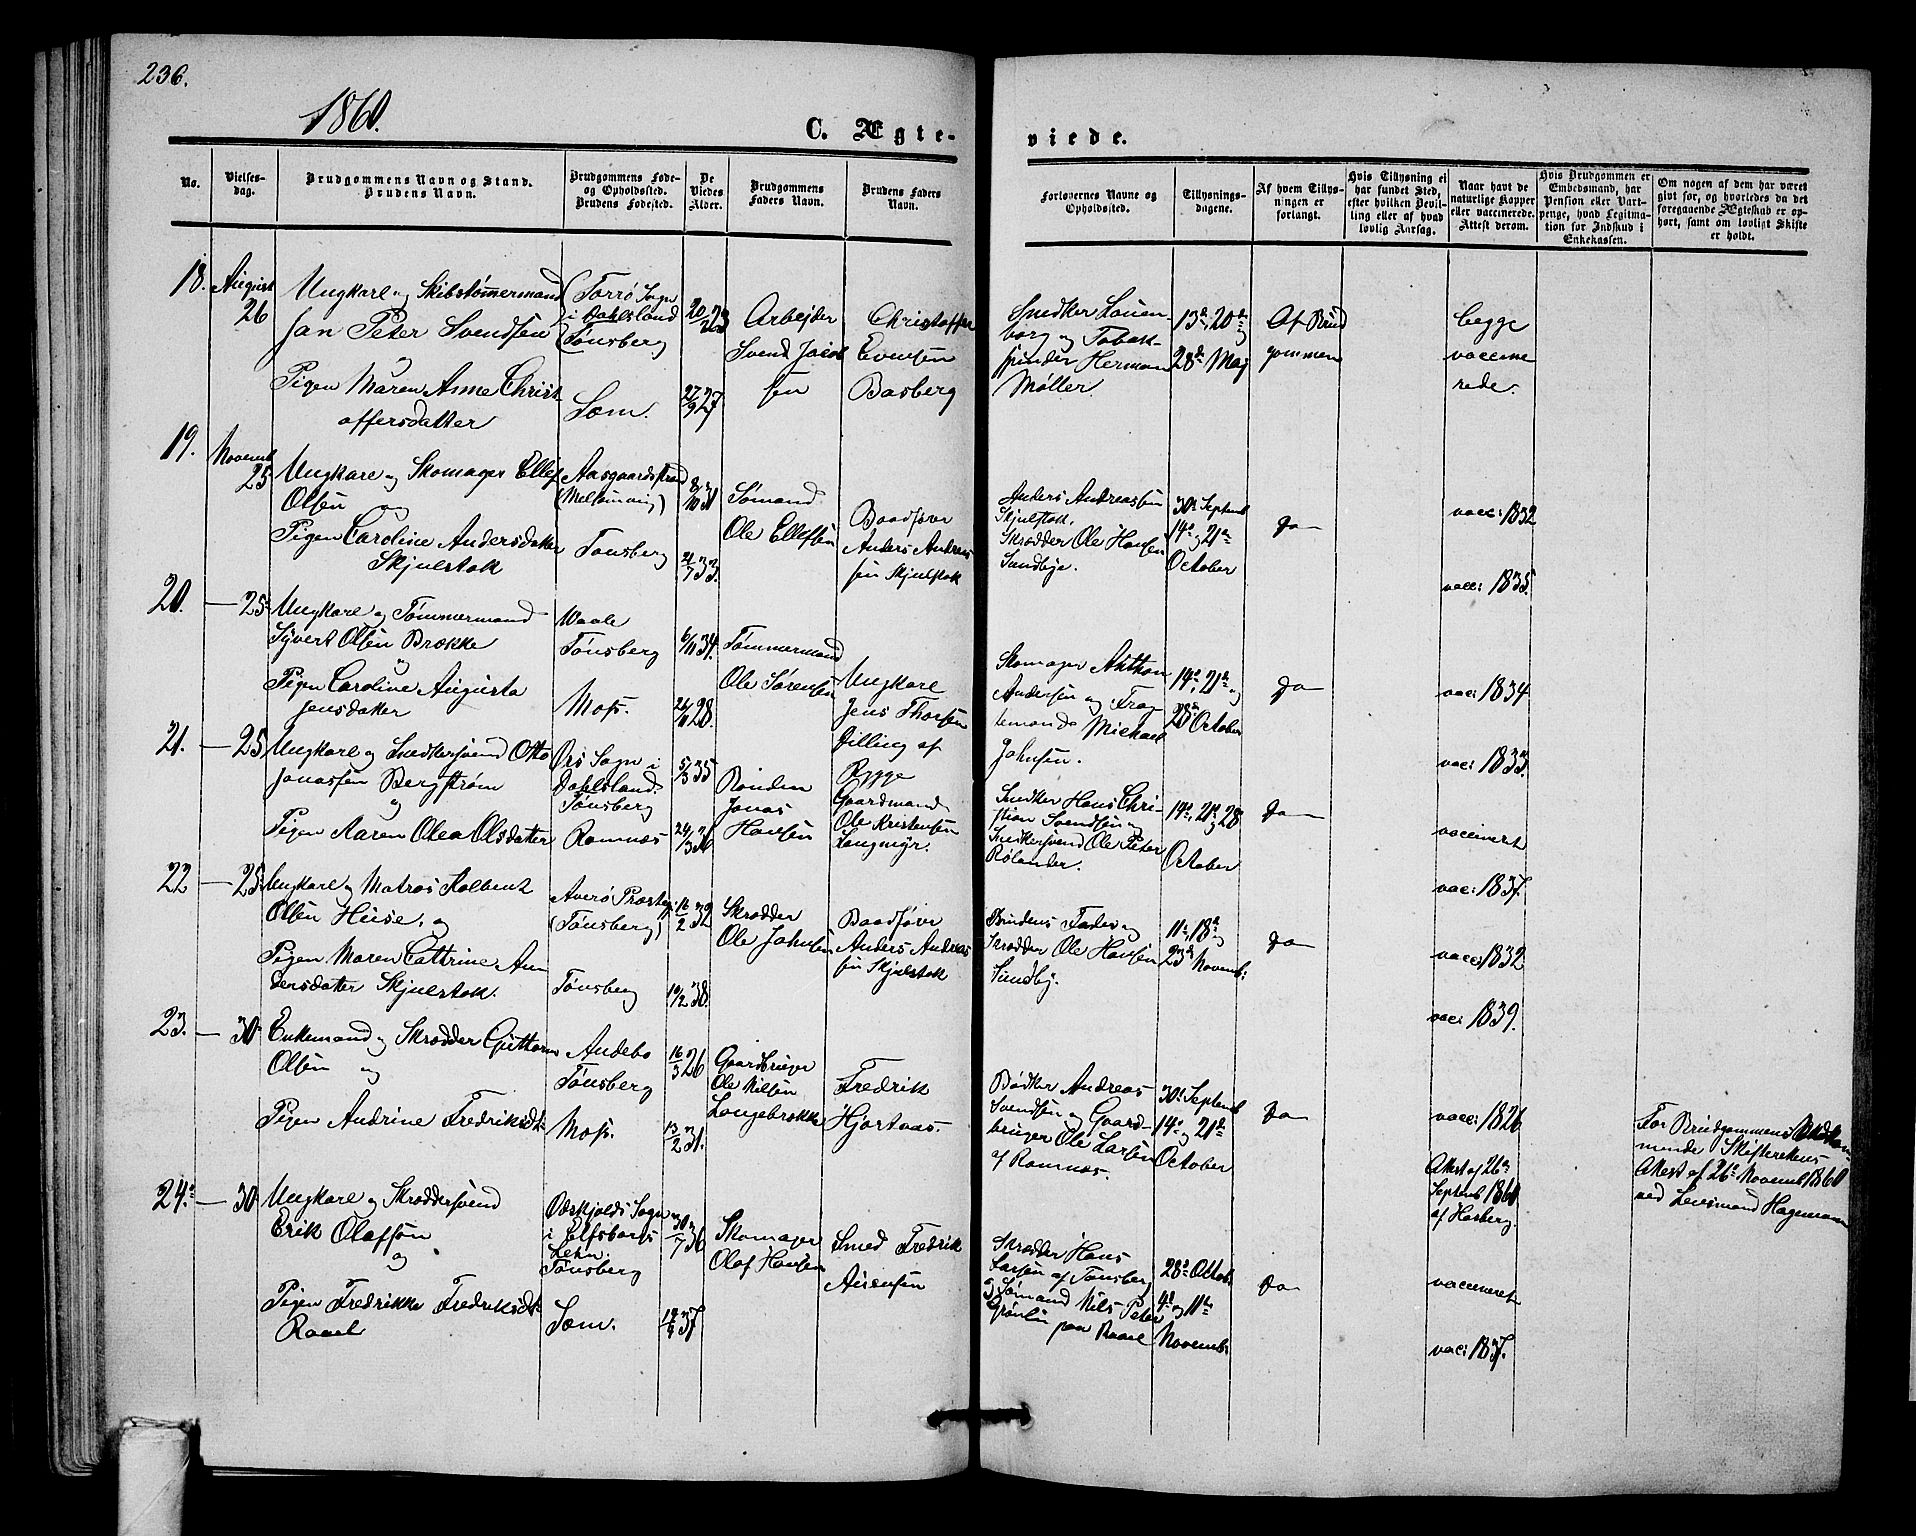 236.
1860.
C. Ægte-
viede.
No.
Vielses-
dag.
Brudgommens Navn og Stand.
Brudens Navn.
Brudgommens Føde-
og Opholdssted.
Brudens Fødested.
De
Viedes
Alder.
Brudgommens
Faders Navn.
Brudens Faders
Navn.
Forlovernes Navne og
Opholdssted.
Tillysnings-
dagene.
Af hvem Tillys-
ningen er
forlangt.
Hvis Tillysning ei
har fundet Sted,
efter hvilken Bevil-
ling eller af hvad
lovlig Aarsag.
Naar havt de
naturlige Kopper
eller vaccinerede.
Attest derom.
Hvis Brudgommen er
Embedsmand, har
Pension eller Vart-
penge, hvad Legitima-
tion for Indskud i
Enkekassen.
Om nogen af dem har været
givt før, og hvorledes da det
foregaaende Ægteskab er op-
hørt, samt om lovligt Skifte
er holdt.
18.
August
26
Ungkarl og Skibstømmermand
Jan Peter Svendsen
og
Pigen Maren Anne Christ
offersdatter
Torrö Sogn
i Dahlsland
Tønsberg
Sæm.
27/9 27
Arbejder
Svend Jacob
sen
Christoffer
Evensen
Basberg
Snedker Lauen-
borg og Tobak-
spinder Herman
Møller.
13de, 20de og
28de Maj
Af Brud
gommen
begge
vaccine
rede.
19.
Novemb
25
Ungkarl og Skomager Ellef
Olsen og
Pigen Caroline Andersdatter
Skjulstok
Aasgaardstrand
Tønsberg
8/10 31
21/7 33.
Sømand
Ole Ellefsen
Baadfører
Anders Andreas
sen Skjulstok
Anders Andreassen
Skjulstok,
Skrædder Ole Hansen
Sundbye.
30te Septemb
14de og 21de
October
Ja
vacc: 1832
vacc: 1835.
20.
— 25
Ungkarl og Tømmermand
Syvert Olsen Brække
og
Pigen Caroline Augusta
Jensdatter
Vaale
Tønsberg
Moss.
6/11 34.
28.
Tømmermand
Ole Sørensen
Ungkarl
Jens Thorsen
Jilling af
Rygge
Skomager Anthon
Andersen og Frag-
temand Michael
Johnsen.
14de, 21de og
28de October
Ja
vac: 1834
vac: 1833.
21.
— 25
Ungkarl og Snedkersvend Otto
Jonassen Bergstrøm
og
Pigen Aaren Olea Olsdatter
Örs Sogn i
Dahlsland.
Tønsberg
Ramnæs
5/3 35
24/3 36
Bonden
Jonas
Hansen
Gaardmand
Ole Kristensen
Langmyr.
Snedker Hans Chri-
stian Svendsen og
Snedkersvend Ole Peter
Rølander.
14de, 21de og 28
October
Ja
vaccineret
vac: 1837.
22
— 25
Ungkarl og Matros Kolbent
Olsen Huse, og
Pigen Maren Cathrine An
dersdatter Skjulstok.
Averø Præstegj
(Tønsberg)
Tønsberg
16/2 32
19/2 38.
Skrædder
Ole Johnsen
Baadfører
Anders Andreas
sen Skjulstok
Brudens Fader og
Skrædder Ole Hansen
Sundby.
11te, 18de og
23de Novemb:
Ja
vacc: 1832
vac: 1839.
23.
— 30
Enkemand og Skrædder Guttorm
Olsen og
Pigen Andrine Fredriksdt:
Andebo
Tønsberg
Moss.
16/3 26
13/2 31.
Gaardbruger
Ole Nilsen
Langebrække
Fredrik
Hjortaas
Bødker Andreas
Svendsen og Gaard-
bruger Ole Larsen
af Ramnæs.
30te Septemb
14de og 21de
October
Ja
vacc: 1826
Attest af 26de
Septemb 1860
af Hasberg.
For Brudgommens Vedkom
mende Skifterettens
Attest af 26de Novemb 1860
ved Lensmand Hagemann
24.
— 30
Ungkarl og Skræddersvend
Erik Olafsön
og
Pigen Fredrikke Fredriksdt:
Raael
Sogn
i Elfsborgs
Lehn.
Tønsberg
Sæm.
30/7 36
37
Skomager
Olaf Hansen
Smed Fredrik
Skrædder Hans
Larsen af Tønsberg
og Sømand Nils Peter
Grønlie paa Raael
28de Octob.
4de og 11te
Novemb.
Ja
vaccineret
vac: 1837.